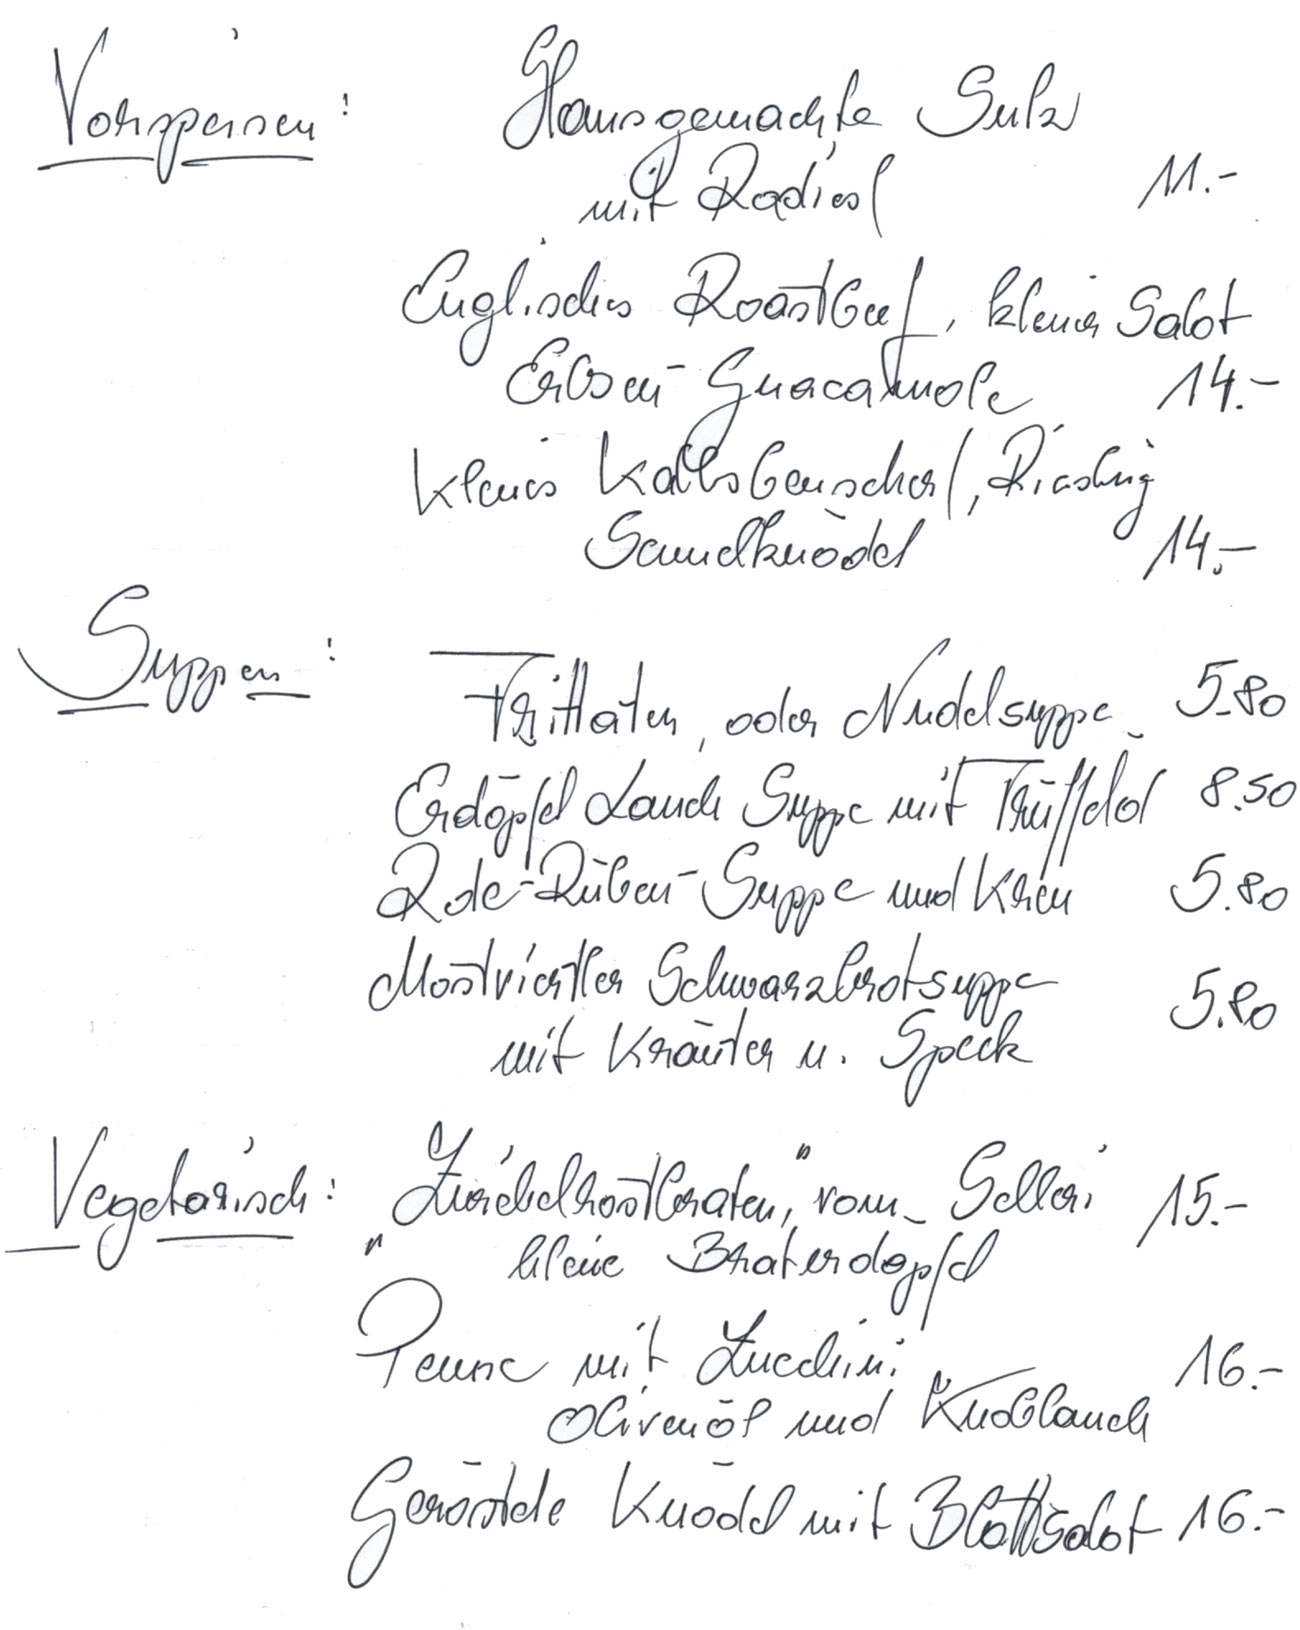 Vorspeisen: Hausgemachte Sulz
mit Radiesl 11.-
Englisches Roastbeef, kleiner Salat
Erbsen-Guacamole 14.-
Kleines Kalbsbeuscherl, Riesling
Semmelknödel 14.-
Suppen:
Frittaten, oder Nudelsuppe 5.80
Erdöpfel Lauch Suppe mit Trüffelöl 8.50
Rote-Rüben-Suppe und Kren 5.80
Mostviertler Schwarzbrotsuppe
mit Kräuter u. Speck 5.80
Vegetarisch: "Zwiebelrostbraten" vom Selleri 15.-
kleine Braterdäpfel
Penne mit Zucchini 16.-
Olivenöl und Knoblauch
Geröstete Knödel mit Blattsalat 16.-